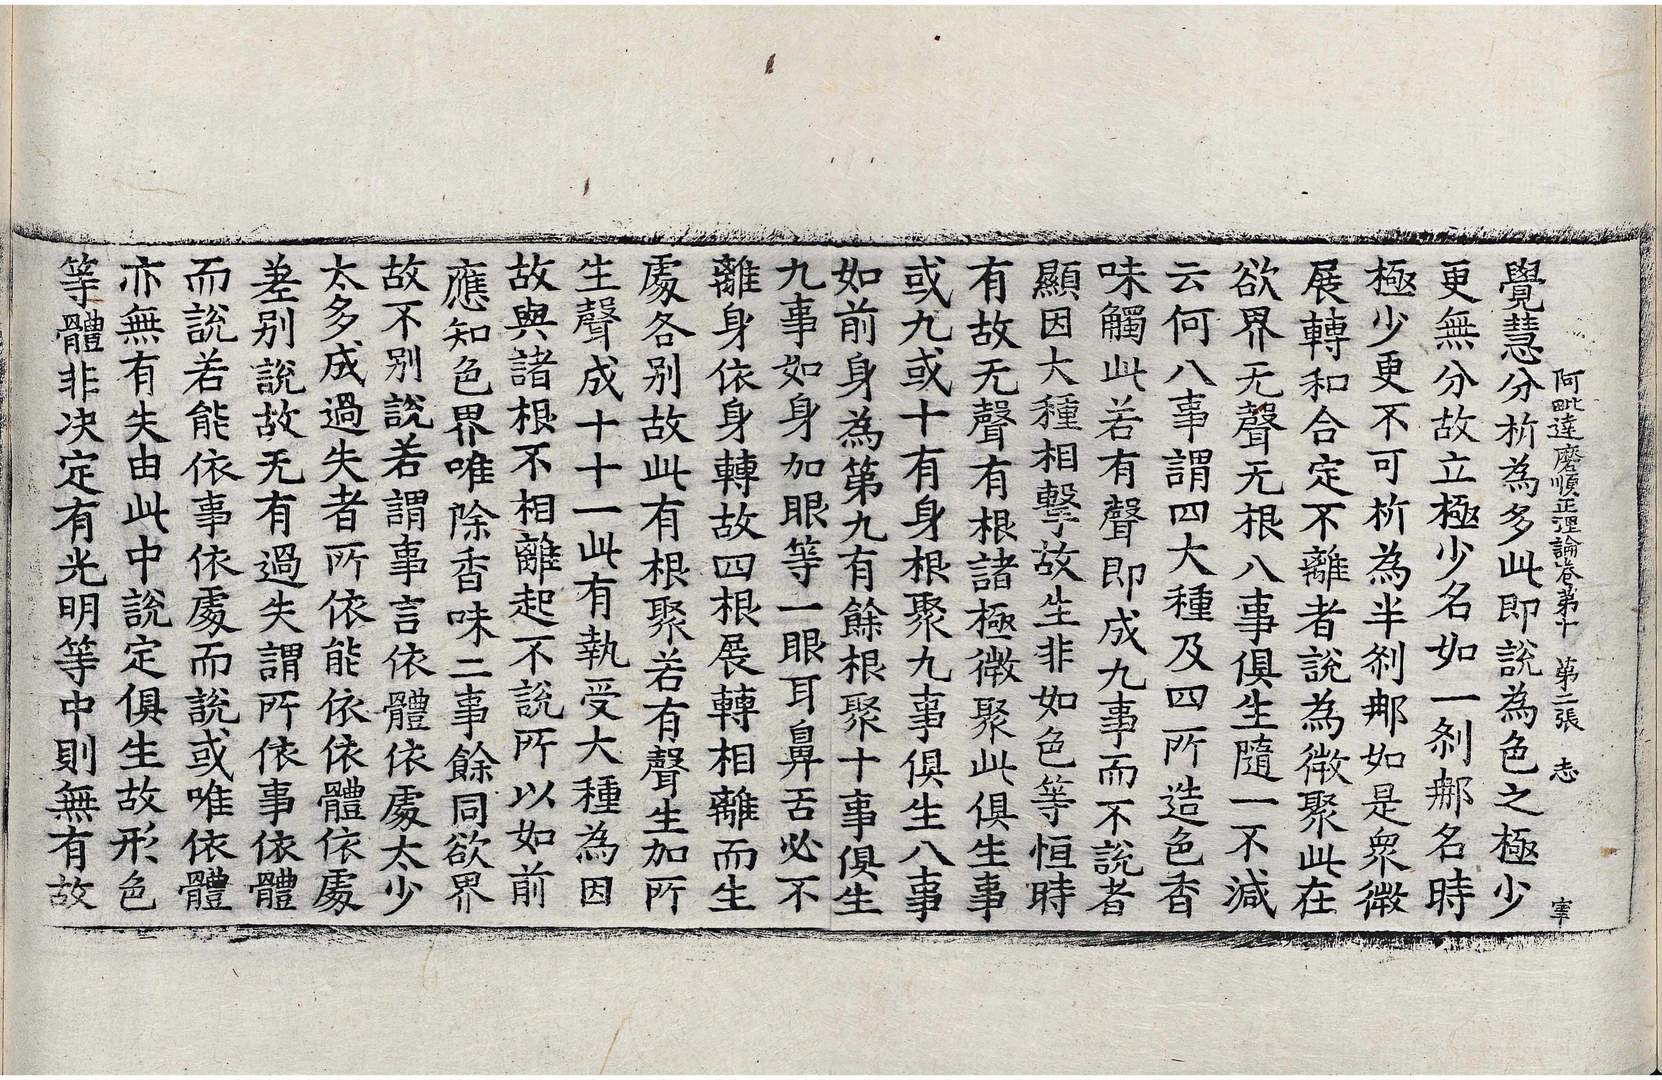 阿毗達磨順正理論卷第十　第二張　志
覺慧分析為多此即說為色之極少
更無分故立極少名如一剎那名時
極少更不可析為半剎那如是衆微
展轉和合定不離者說為微聚此在
欲界无聲无根八事俱生隨一不減
云何八事謂四大種及四所造色香
味觸此若有聲即成九事而不說者
顯因大種相擊故生非如色等恒時
有故无聲有根諸極微聚此俱生事
或九或十有身根聚九事俱生八事
如前身為第九有餘根聚十事俱生
九事如身加眼等一眼耳鼻舌必不
離身依身轉故四根展轉相離而生
處各别故此有根聚若有聲生加所
生聲成十十一此有執受大種為因
故與諸根不相離起不說所以如前
應知色界唯除香味二事餘同欲界
故不别說若謂事言依體依處太少
太多成過失者所依能依依體依處
差别說故无有過失謂所依事依體
而說若能依事依處而說或唯依體
亦無有失由此中說定俱生故形色
等體非决定有光明等中則無有故